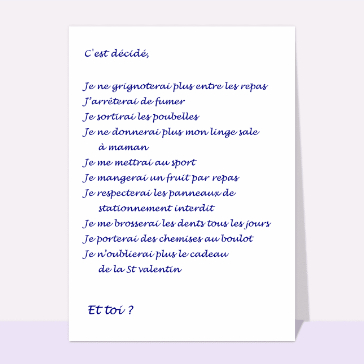 C'est décidé,
Je ne grignoterai plus entre les repas
J'arrêterai de fumer
Je sortirai les poubelles
Je ne donnerai plus mon linge sale
à maman
Je me mettrai au sport
Je mangerai un fruit par repas
Je respecterai les panneaux de
stationnement interdit
Je me brosserai les dents tous les jours
Je porterai des chemises au boulot
Je n'oublierai plus le cadeau
de la St valentin
Et toi ?